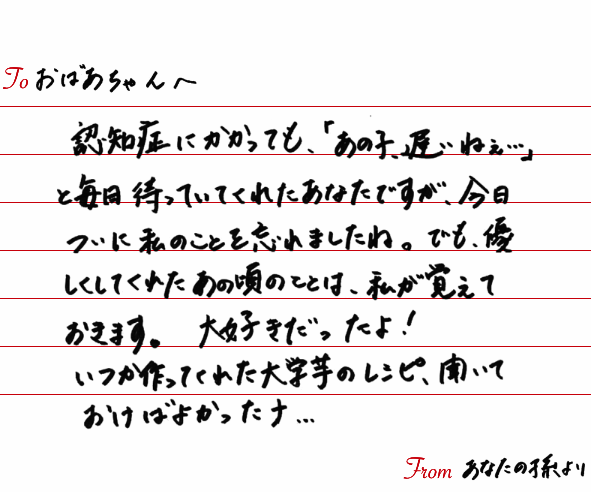 To おばあちゃんへ
認知症にかかっても、「あの子、遅いねぇ…」
と毎日待っていてくれたあなたですが、今日
ついに私のことを忘れましたね。でも、優
しくしてくれたあの頃のことは、私が覚えて
おきます。 大好きだったよ!
いつか作ってくれた大学芋のレシピ、聞いて
おけばよかったナ…
From あなたの孫より